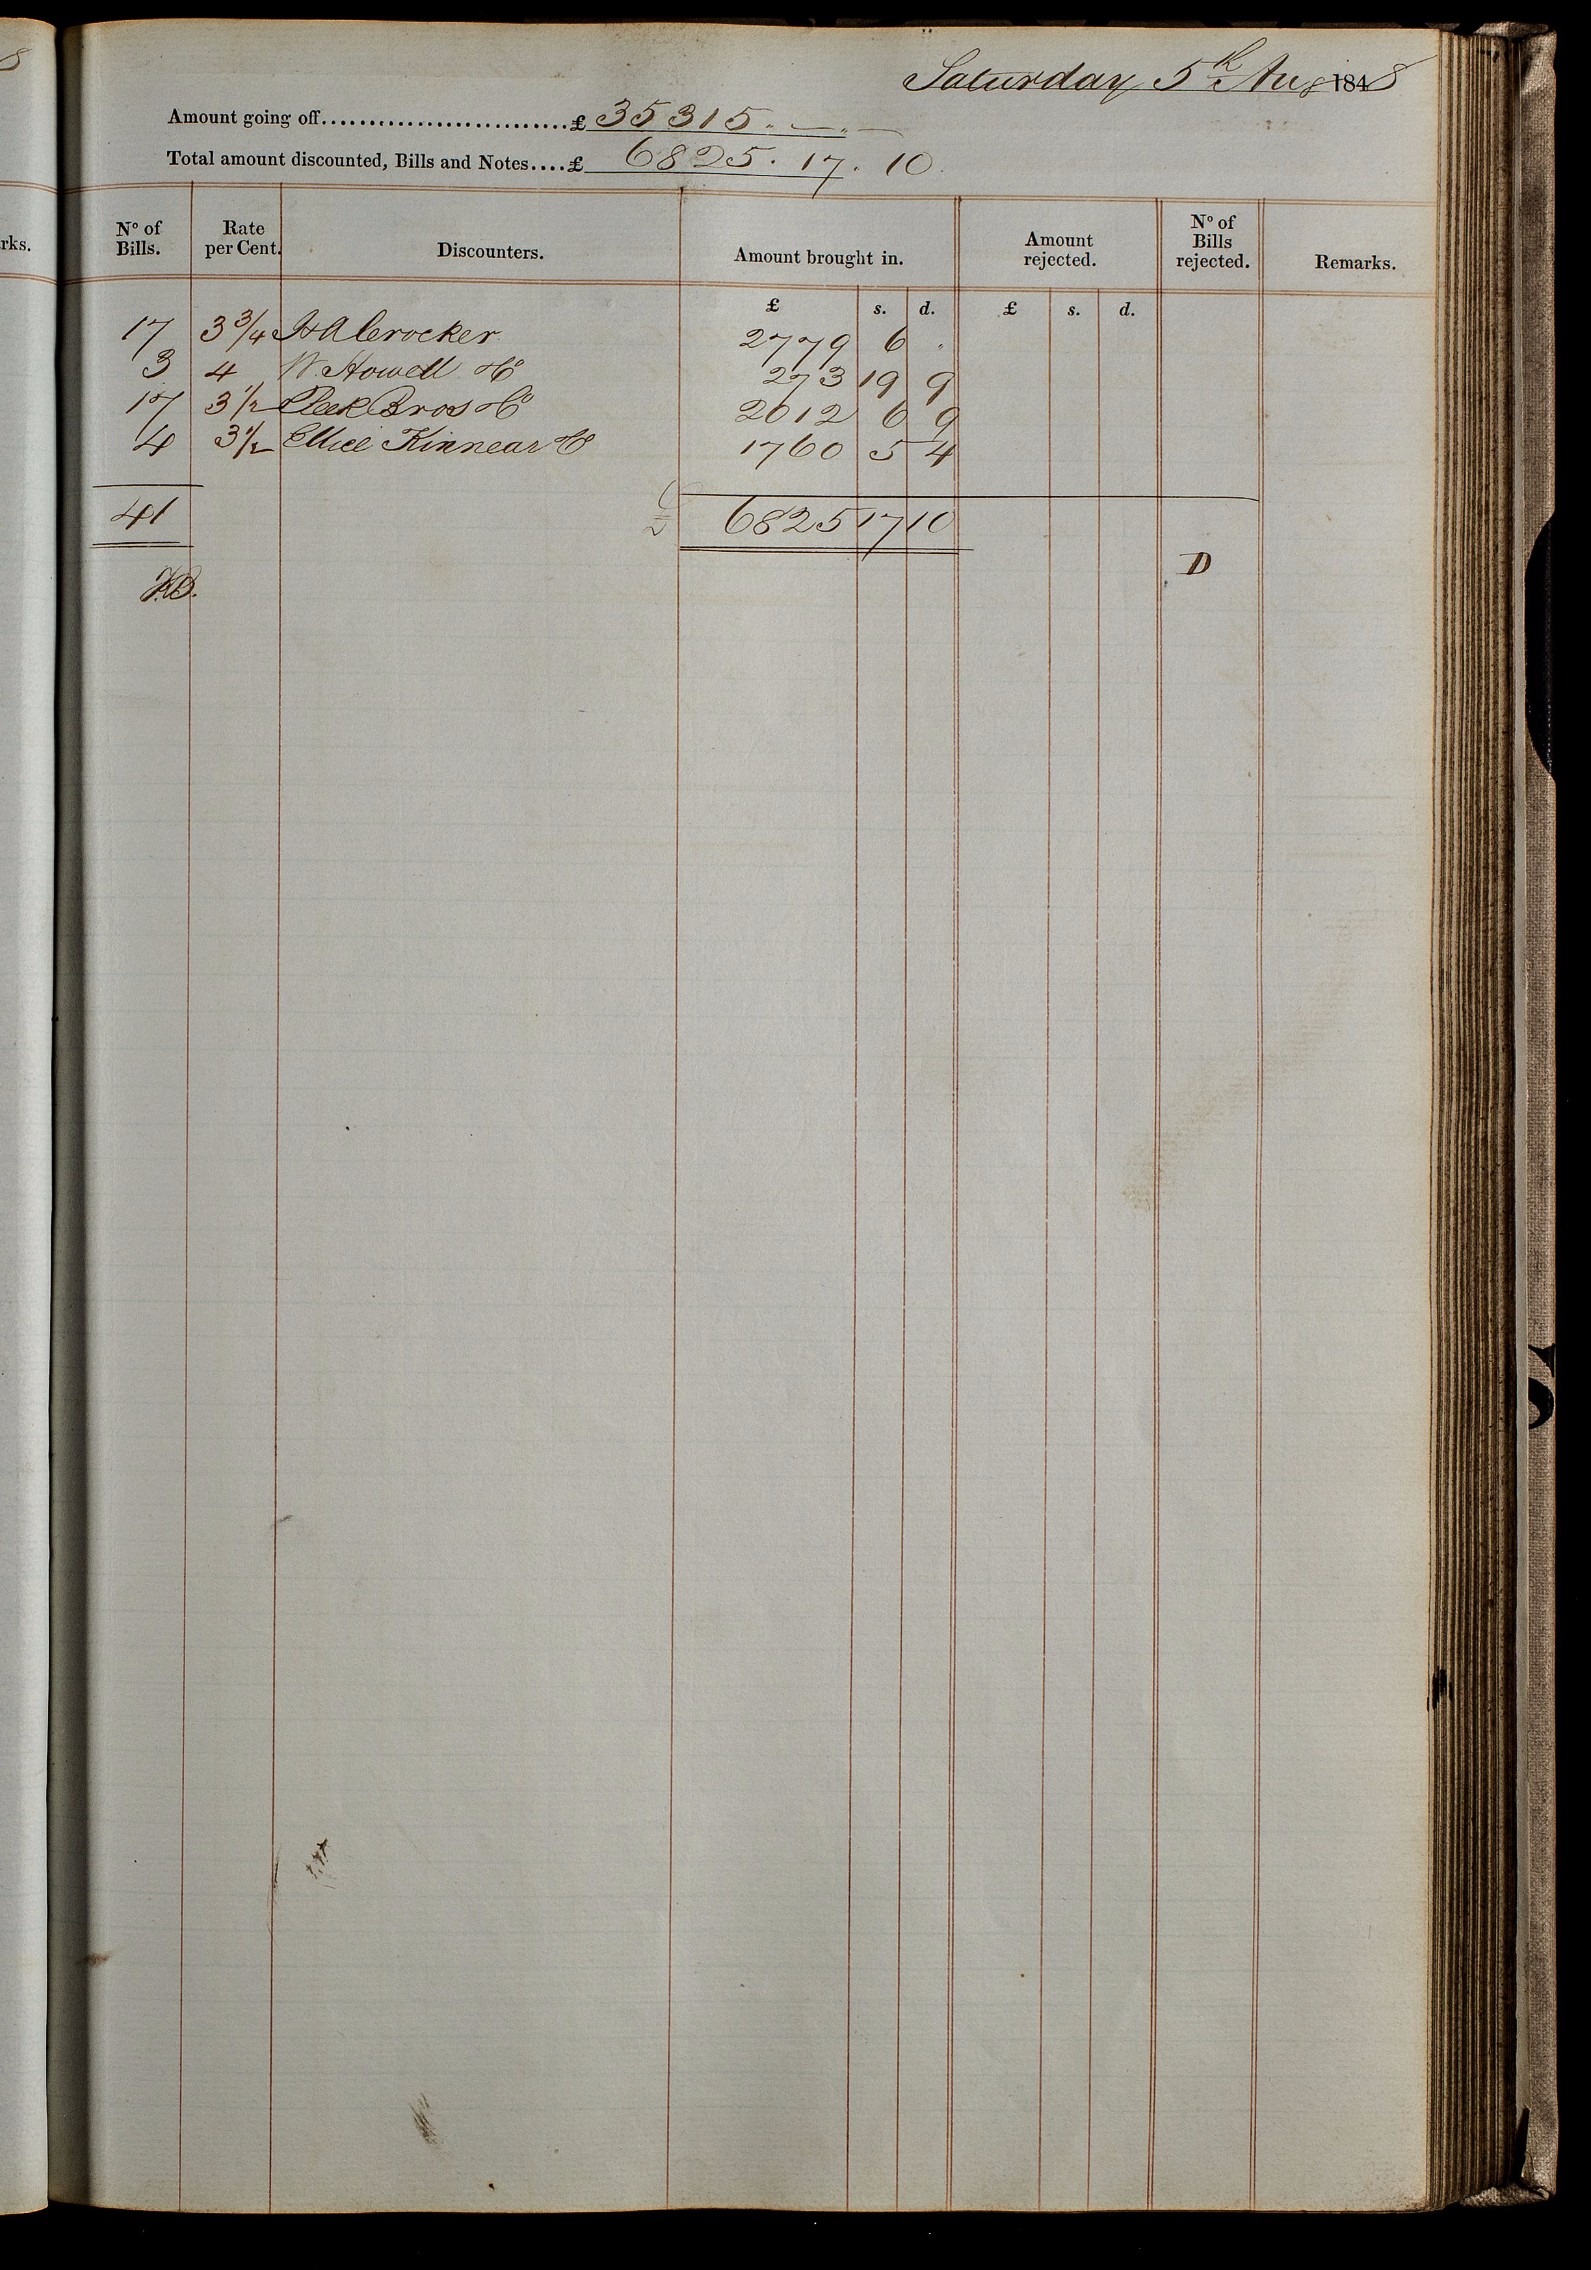 Saturday 5th Aug 1848
Amount going off........................... £ 35315. — . —
Total amount discounted, Bills and Notes.... £ 6825. 17. 10.
rks.
No of Bills. Rate per Cent. Discounters. Amount brought in. Amount rejected. No of Bills rejected. Remarks.
£ s. d. £ s. d.
17 3 3/4 HA Crocker 2779 6 .
3 4 W. Howell &Co 273 19 9
17 3 1/2 Peek Bros &Co 2012 6 9
4 3 1/2 Ellice Kinnear &Co 1760 5 4
41 6825 17 10
D